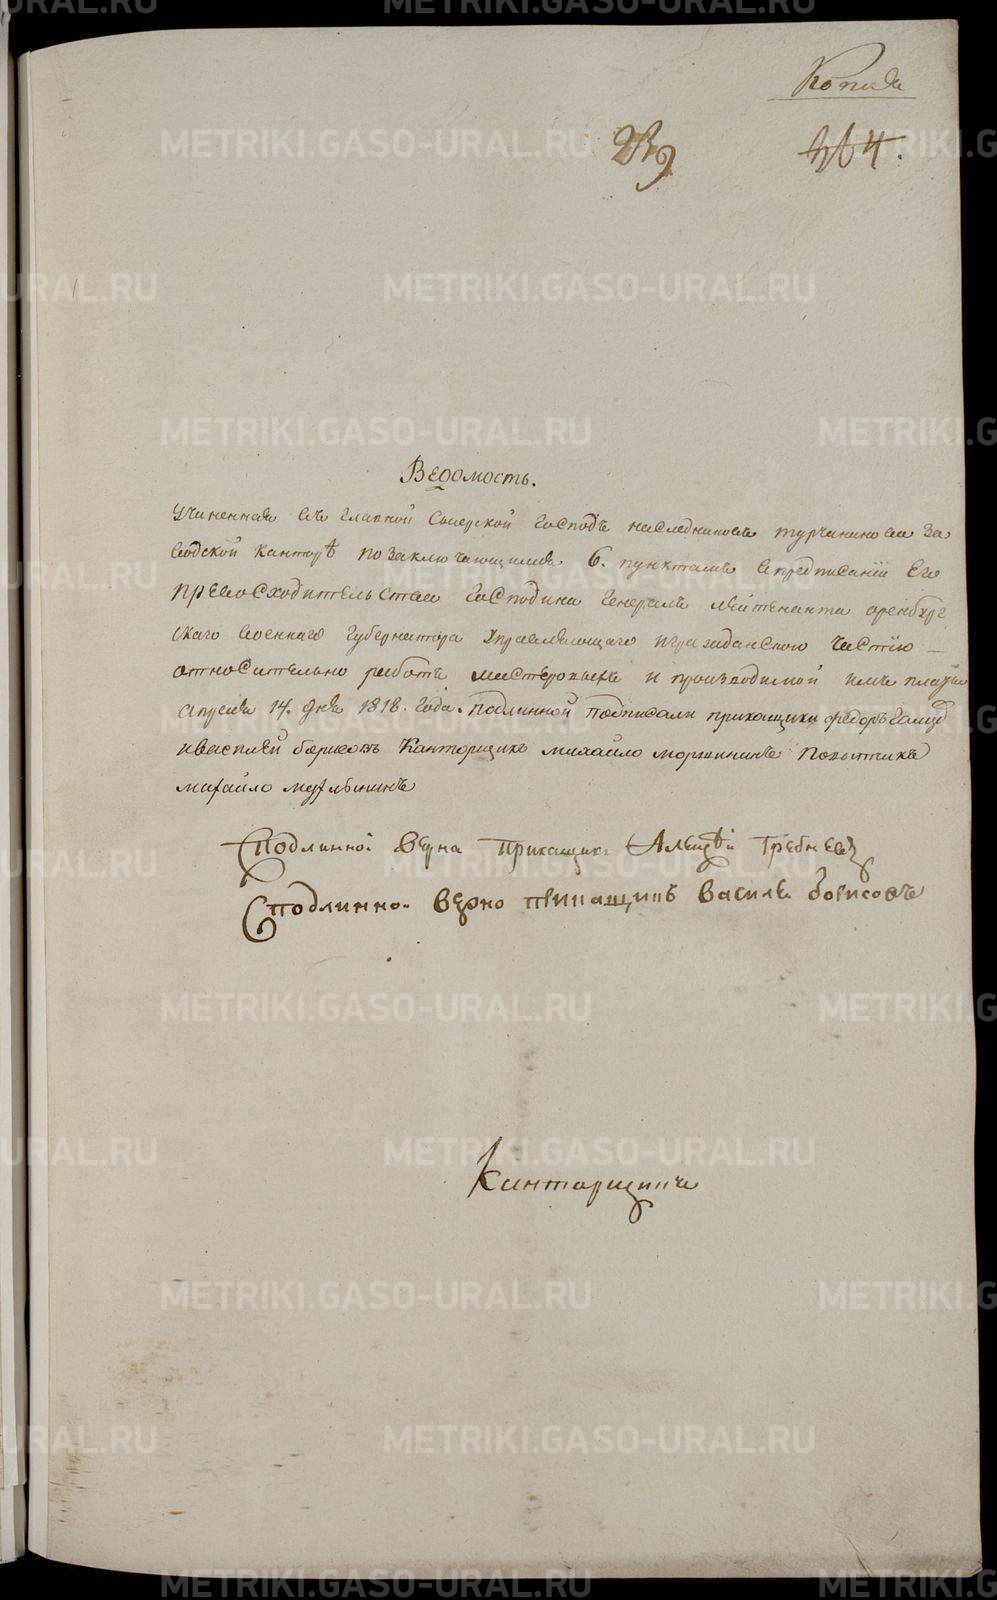 Копия
239 364.
Ведомость.
Учиненная въ главной Сысерской Господъ наследниковъ турчанинова за
водской канторѣ по заключающимся 6. пунктамъ впредписанiи Его
превосходительства Господина Генералъ лейтенанта оренбург
скаго военнаго Губернатора Управляющаго игражданскою частiю
относительно работъ мастеровыхъ и производимой имъ платы
апреля 14. дня 1818. года. подлинной подписали прикащики федоръ
ивасилей борисовъ Канторщикъ михайло Повытчикъ
михайло
Сподлинной верна прикащикъ Алексѣй
Сподлинно верно прикащикъ Василей борисовъ
Канторщикъ